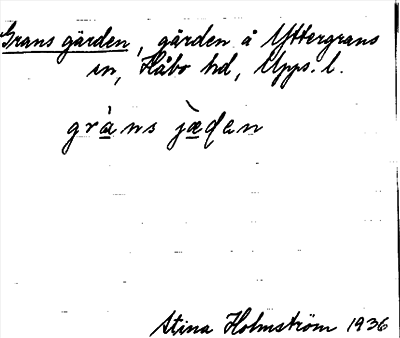 Grans gärden, gärden å Yttergrans
sn, Håbo hd, Upps. l.
gràns jæḍen
Stina Holmström 1936